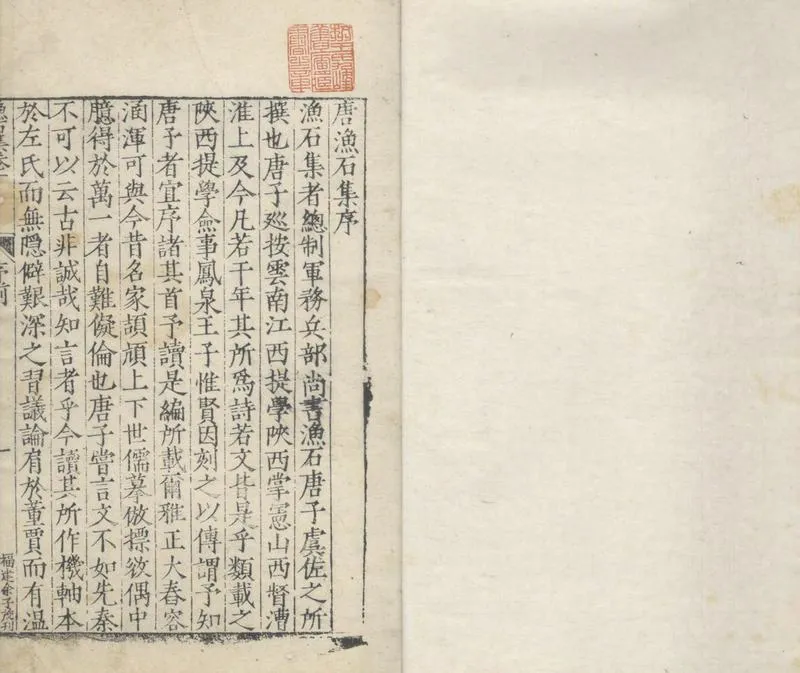 唐漁石集序
漁石集者總制軍務兵部尚書漁石唐子虞佐之所
撰也唐子廵按雲南江西提學陜西掌憲山西督漕
淮上及今凡若干年其所爲詩若文皆是乎類載之
陜西提學僉事鳳泉王子惟賢因刻之以傳謂予知
唐子者宜序諸其首予讀是編所載爾雅正大春容
涵渾可與今昔名家頡頏上下世儒摹倣摽敓偶中
臆得於萬一者自難儗倫也唐子嘗言文不如先秦
不可以云古非誠哉知言者乎今讀其所作機軸本
於左氏而無隱僻艱深之習議論有於董賈而有溫
序前
一
福建余子茂刊